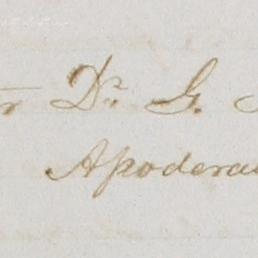 Dr G.
Apodera